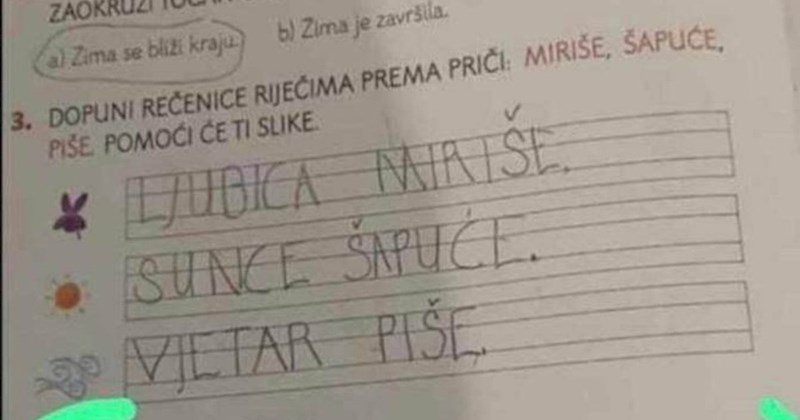 ZAOKRUŽI
a) Zima se bliži kraju. b) Zima je završila.
3. DOPUNI REČENICE RIJEČIMA PREMA PRIČI: MIRIŠE, ŠAPUĆE,
PIŠE. POMOĆI ĆE TI SLIKE.
LJUBICA MIRIŠE.
SUNCE ŠAPUĆE.
VJETAR PIŠE.